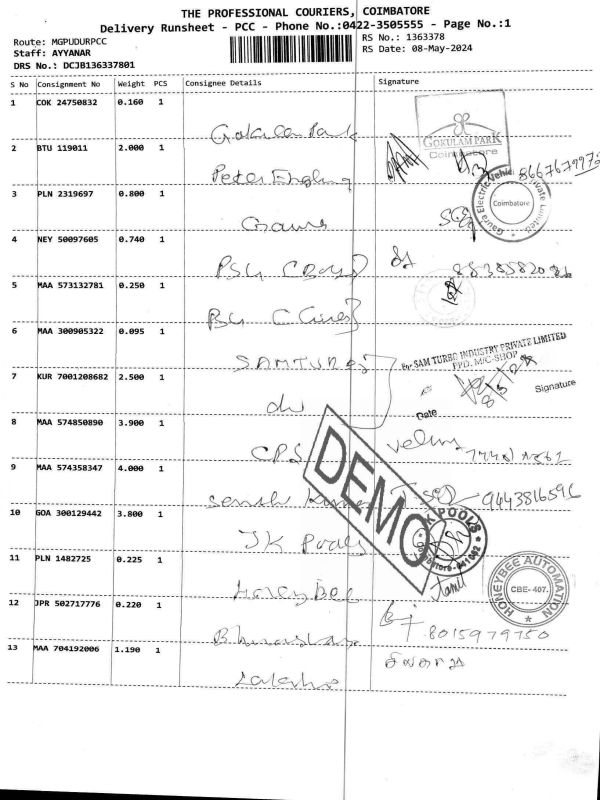 THE PROFESSIONAL COURIERS, COIMBATORE
Delivery Runsheet - PCC - Phone No.:0422-3505555 - Page No.:1
Route: MGPUDURPCC
Staff: AYYANAR
DRS No.: DCJB136337801
RS No.: 1363378
RS Date: 08-May-2024
S No Consignment No Weight PCS Consignee Details Signature
1 COK 24750832 0.160 1
Gokulam Park
GOKULAM PARK
Coimbatore
2 BTU 119011 2.000 1
Peter
3 PLN 2319697 0.800 1
Gaura
Gaura Electric Vehicle Private Limited
Coimbatore
4 NEY 50097605 0.740 1
PSG C Boys
8838582086
5 MAA 573132781 0.250 1
PSG C
6 MAA 300905322 0.095 1
SAMTURBO
For SAM TURBO INDUSTRY PRIVATE LIMITED
FPD. M/C-SHOP
8/5/24
Signature
Date
7 KUR 7001208682 2.500 1
do
8 MAA 574850890 3.900 1
CPS
DEMO
9 MAA 574358347 4.000 1
Senthil Kumar
9443816596
10 GOA 300129442 3.800 1
JK Pools
JK POOLS
Coimbatore-641062
Tamil
11 PLN 1482725 0.225 1
Honey Bee
HONEYBEE AUTOMATION
CBE-407.
12 JPR 502717776 0.220 1
8015979750
13 MAA 704192006 1.190 1
Lakshmi